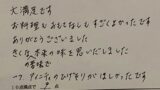 大満足です
お料理もおもてなしもすごくよかったです
ありがとうございました
きくな本来の味を思いだしました
の香味で
一つ、ディナーのひげもりがほしかったです